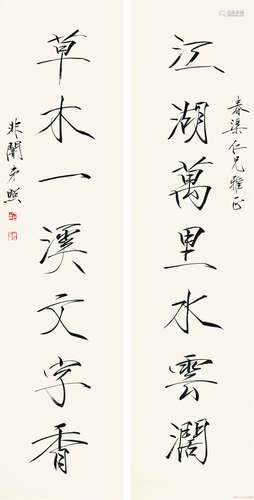 春渠仁兄雅正
江湖萬里水雲濶
草木一溪文字香
非闇弟照